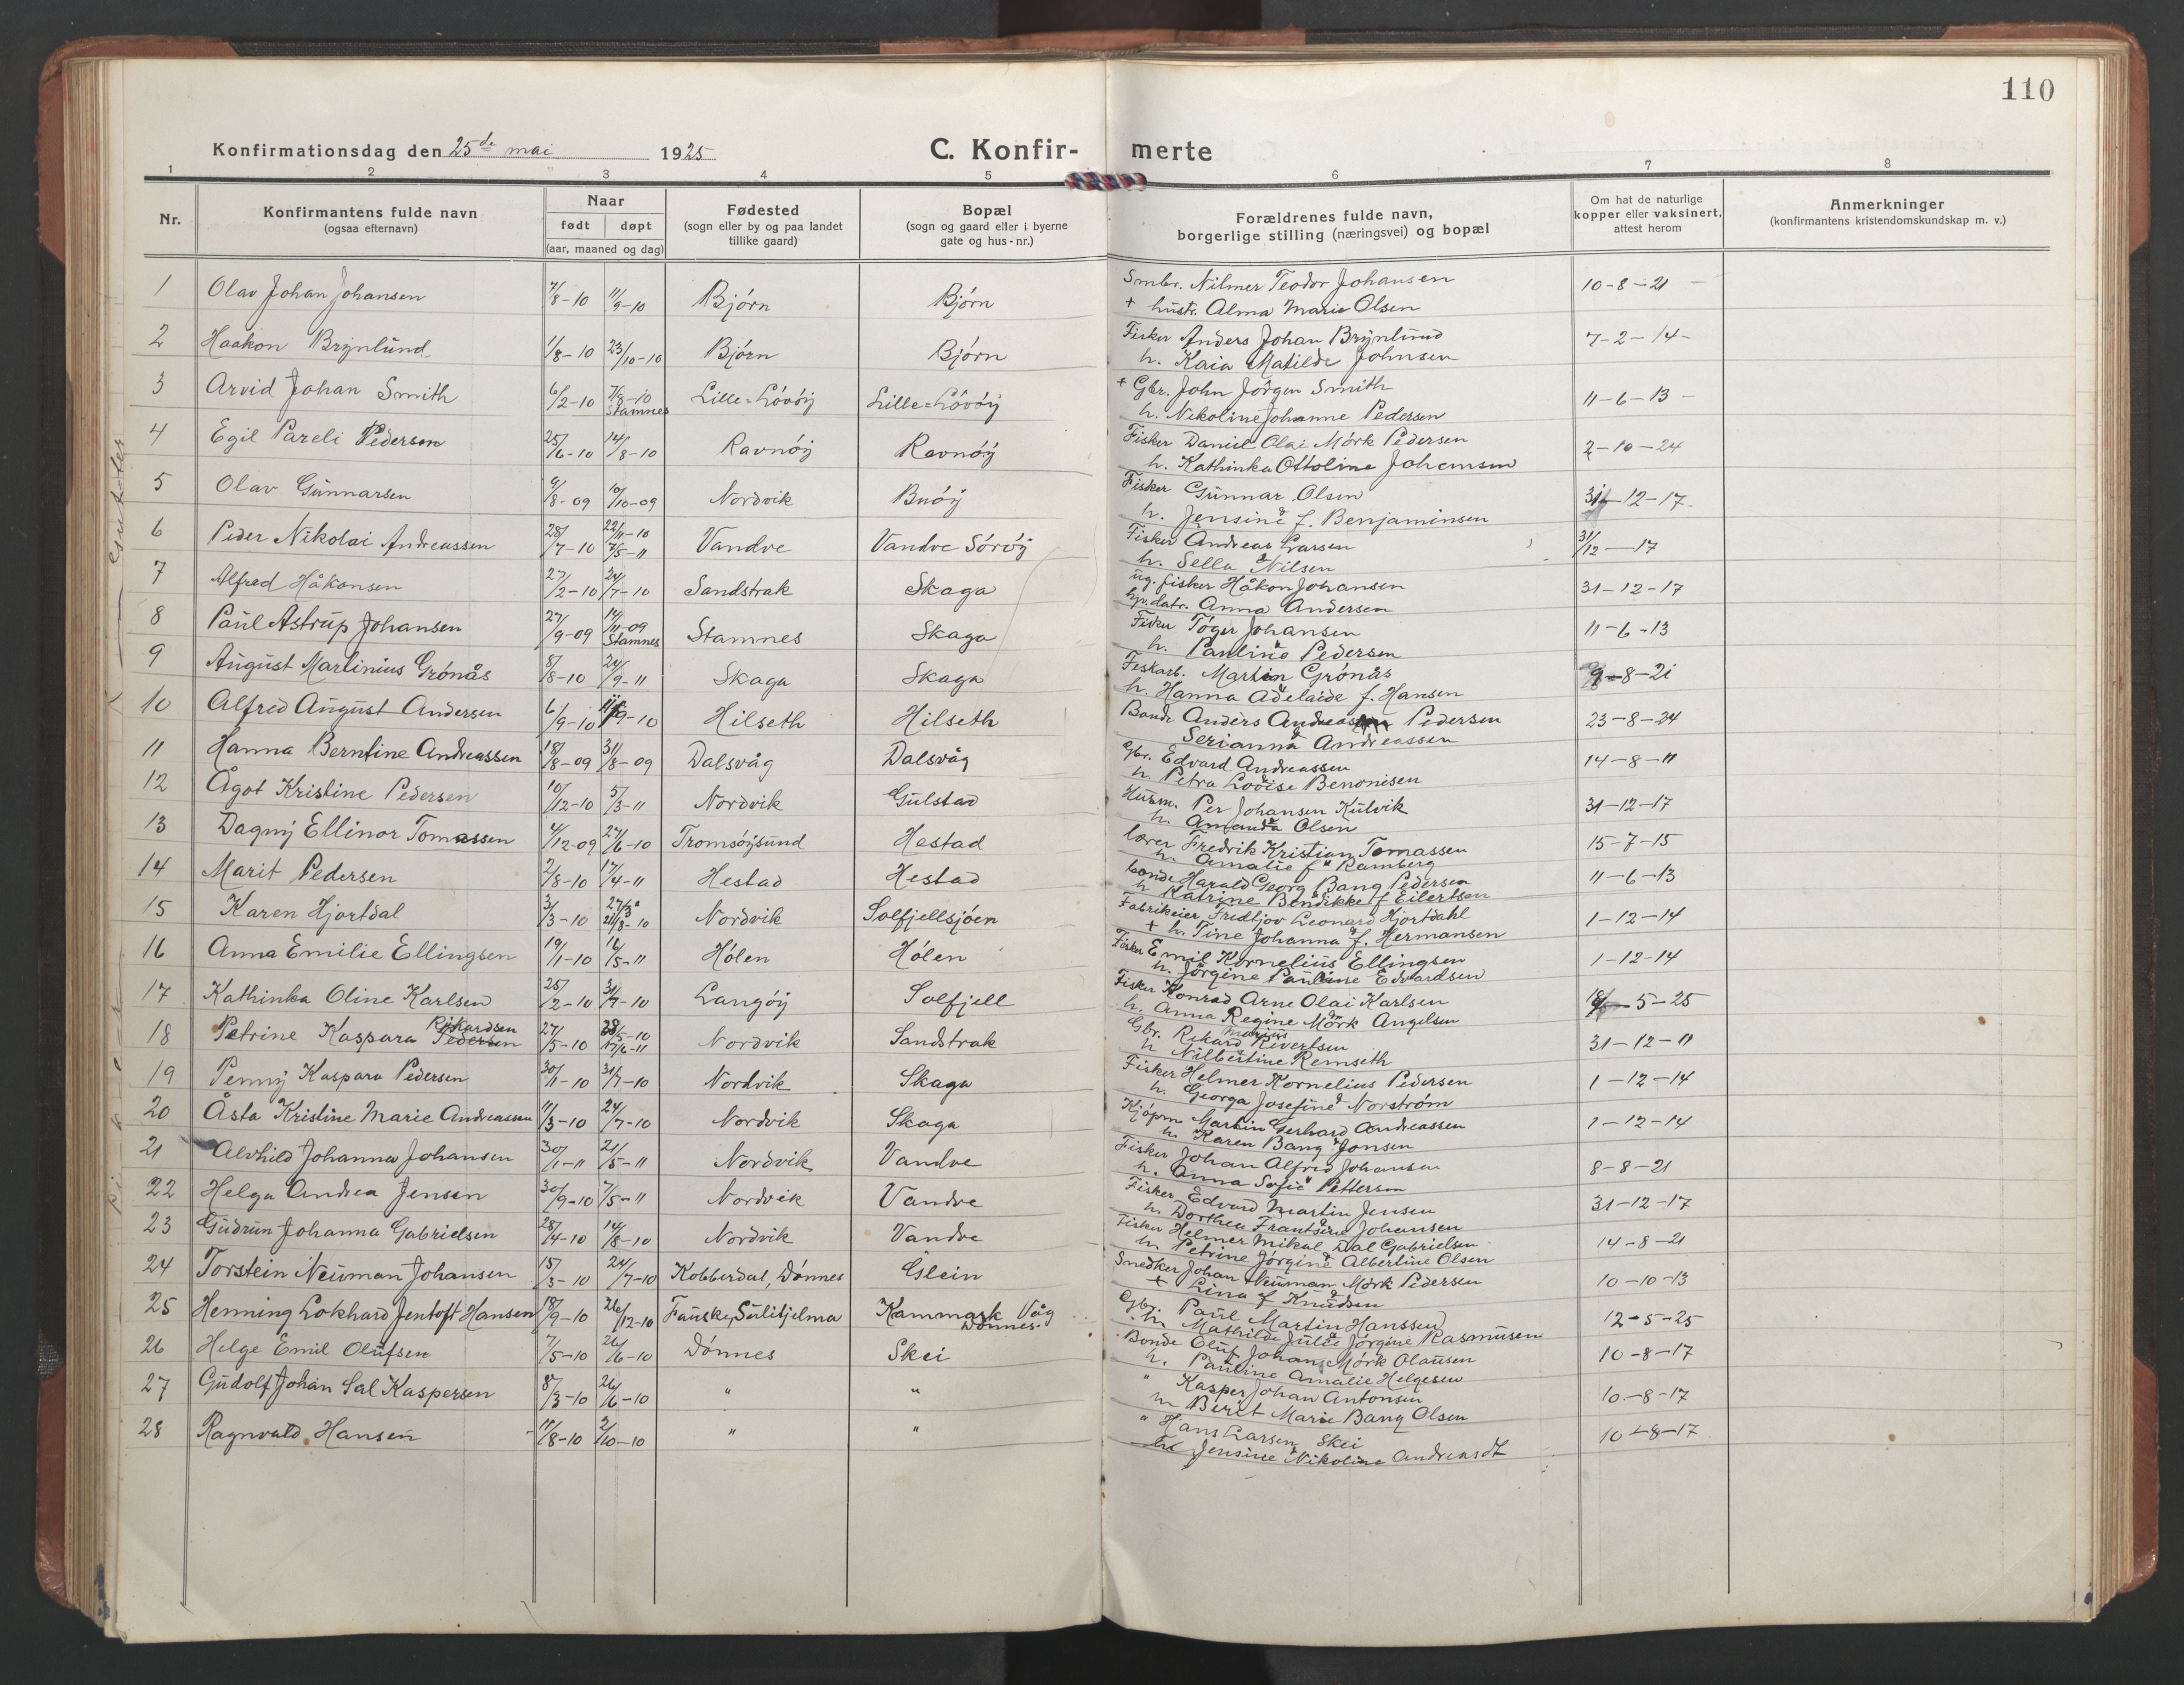 110
Konfirmationsdag den 25de mai 1925
C. Konfir-
merte
1 2 3 4 5 6 7 8
Nr.
Konfirmantens fulde navn
(ogsaa efternavn)
Naar
født døpt
(aar, maaned og dag)
Fødested
(sogn eller by og paa landet
tillike gaard)
Bopæl
(sogn og gaard eller i byerne
gate og hus-nr.)
Forældrenes fulde navn,
borgerlige stilling (næringsvei) og bopæl
Om hat de naturlige
kopper eller vaksinert,
attest herom
Anmerkninger
(konfirmantens kristendomskundskap m. v.)
1 Olav Johan Johansen 7/8-10 11/9-10 Bjórn Bjórn Smbr. Nilmer Teodor Johansen 10-8-21
+ hustr. Alma Marie Olsen
2 Haakon Brynlund 1/8-10 23/10-10 Bjórn Bjórn Fisker Anders Johan Brynlund 7-2-14
h. Kaia Matilde Johnsen
3 Arvid Johan Smith 6/2-10 7/8-10 Stamnes Lille=Lóvóy Lille=Lóvóy + Gbr. John Jörgen Smith 11-6-13
h. Nekoline Johanne Pedersen
4 Egil Pareli Pedersen 25/6-10 14/8-10 Ravnóy Ravnóy Fisker Daniel Olai Mórk Pedersen 2-10-24
h. Kathinka Ottoline Johansen
5 Olav Gunnarsen 9/8-09 10/10-09 Nordvik Buóy Fisker Gunnar Olsen 31-12-17
h. Jensine f. Benjaminsen
6 Peder Nikolai Andreassen 28/7-10 22/11-10 7/5-11 Vandve Vandve Sóróy Fisker Andreas Larsen 31/12-17
h. Sella Nilsen
7 Alfred Håkonsen 27/2-10 24/7-10 Sandstrak Skaga ug. fisker Håkon Johansen 31-12-17
hp. datr. Anna Andersen
8 Paul Astrup Johansen 27/9-09 14/11-09 Stamnes Stamnes Skaga Fisker Töger Johansen 11-6-13
h. Pauline Pedersen
9 August Martinius Grónås 8/8-10 24/9-11 Skaga Skaga Feskarb. Martin Grónås 9-8-21
h. Hanna Adelaide f. Hansen
10 Alfred August Andersen 6/9-10 11/9-10 Hilseth Hilseth Bonde Anders Andreas Pedersen 23-8-24
Serianna Andreassen
11 Hanna Berntine Andreassen 18/8-09 31/8-09 Dalsvåg Dalsvåg Gbr. Edvard Andreassen 14-8-11
h. Petra Lovise Benonisen
12 Ågot Kristine Pedersen 10/12-10 5/3-11 Nordvik Gulstad Husm. Per Johansen Kulvik 31-12-17
h. Amanda Olsen
13 Dagny Ellinor Tomassen 4/12-09 27/6-10 Tromsóysund Hestad lærer Fredrik Kristian Tomassen 15-7-15
h. Amalie f. Ramberg
14 Marit Pedersen 2/8-10 17/4-11 Hestad Hestad bonde Harald Georg Bang Pedersen 11-6-13
h Katrine Bendikke f Eilertsen
15 Karen Hjortdal 3/3-10 21/8-10 Nordvik Solfjellsjóen Fabrikeier Fredtjov Leonard Hjortdahl 1-12-14
+ h. Tine Johanna f. Hermansen
16 Anna Emilie Ellingsen 19/1-10 16/5-11 Hólen Hólen Fisker Emil Kornelius Ellingsen 1-12-14
h. Jörgine Pauline Edvardsen
17 Kathinka Oline Karlsen 25/2-10 31/7-10 Langóy Solfjell Fisker Konrad Arne Olai Karlsen 18-5-25
h. Anna Regine Mörk Angelsen
18 Petrine Kaspara Pedersen Rikardsen 27/5-10 28/5-10 17/6-11 Nordvik Sandstrak Gbr. Rikard Marius Sivertsen 31-12-11
h Nilbertine Remseth
19 Penny Kaspara Pedersen 30/1-10 31/7-10 Nordvik Skaga Fisker Helmer Kornelius Pedersen 1-12-14
h. Georga Josefine Norström
20 Åsta Kristine Marie Andreassen 11/3-10 24/7-10 Nordvik Skaga Kjópm Martin Gerhard Andreassen 1-12-14
h. Karen Bang Jonsen
21 Alvhild Johanna Johansen 30/1-11 21/5-11 Nordvik Vandve Fisker Johan Alfred Johansen 8-8-21
h. Anna Sofie Pettersen
22 Helga Andrea Jensen 30/9-10 7/5-11 Nordvik Vandve Fisker Edvard Martin Jensen 31-12-17
h. Dorthea Frantsine Johansen
23 Gudrun Johanna Gabrielsen 28/4-10 14/8-10 Nordvik Vandve Fisker Helmer Mikal Dal Gabrielsen 14-8-21
h. Petrine Jörgine Albertine Olsen
24 Torstein Neuman Johansen 15/3-10 24/7-10 Kobberdal, Dónnes Glein Snedker Johan Neuman Mórk Pedersen 10-10-13
+ Lina f Knudsen
25 Henning Lokhard Jentoft Hansen 18/9-10 26/12-10 Fauske, Sulitjelma Kammark Våg Dónnes Gbr. Paul Martin Hanssen 12-5-25
h. Mathilde Julie Jórgine Rasmusen
26 Helge Emil Olufsen 7/5-10 26/6-10 Dónnes Skei Bonde Oluf Johan Mórk Olausen 10-8-17
h. Pauline Amalie Helgesen
27 Gudolf Johan Sal Kaspersen 8/3-10 26/6-10 " " " Kasper Johan Antonsen 10-8-17
h Berit Marie Bang Olsen
28 Ragnvald Hansen 11/8-10 2/10-10 " " " Hans Larsen Skei 10-8-17
Jensine Nikoline Andreasdt